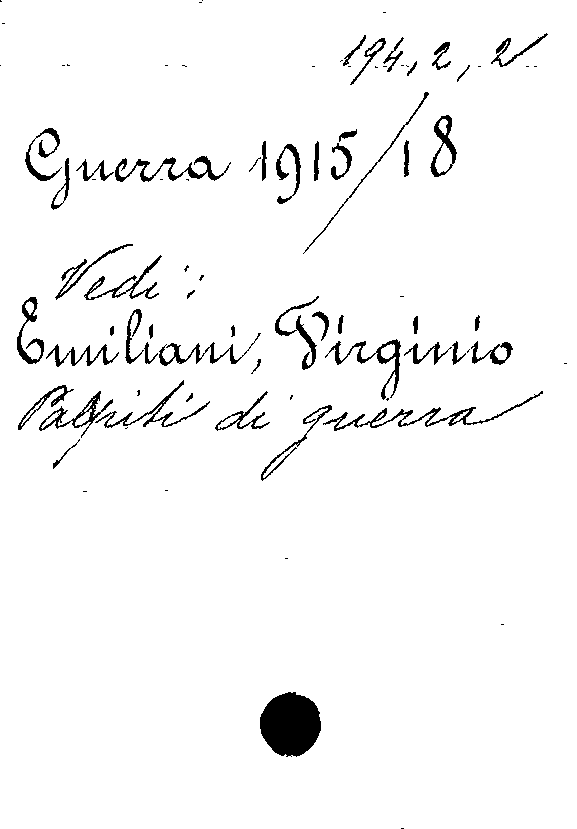 194, 2, 2
Guerra 1915/18
Vedi:
Emiliani, Virginio
Palpiti di guerra